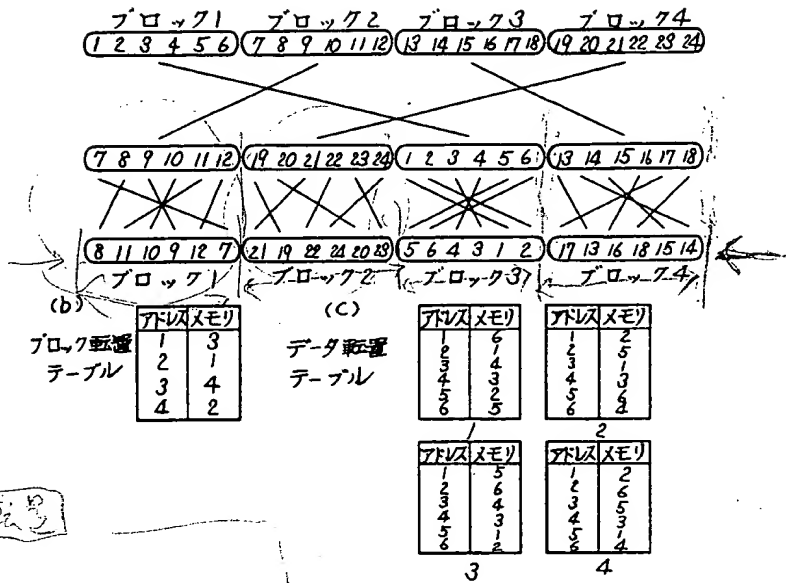 ブロック1 ブロック2 ブロック3 ブロック4
1 2 3 4 5 6 7 8 9 10 11 12 13 14 15 16 17 18 19 20 21 22 23 24
7 8 9 10 11 12 19 20 21 22 23 24 1 2 3 4 5 6 13 14 15 16 17 18
8 11 10 9 12 7 21 19 22 24 20 23 5 6 4 3 1 2 17 13 16 18 15 14
ブロック1 ブロック2 ブロック3 ブロック4
(b)
ブロック転置
テーブル
アドレス メモリ
1 3
2 1
3 4
4 2
(C)
データ転置
テーブル
アドレス メモリ
1 6
2 1
3 4
4 3
5 2
6 5
1
アドレス メモリ
1 2
2 5
3 1
4 3
5 6
6 4
2
アドレス メモリ
1 5
2 6
3 4
4 3
5 1
6 2
3
アドレス メモリ
1 2
2 6
3 5
4 3
5 1
6 4
4